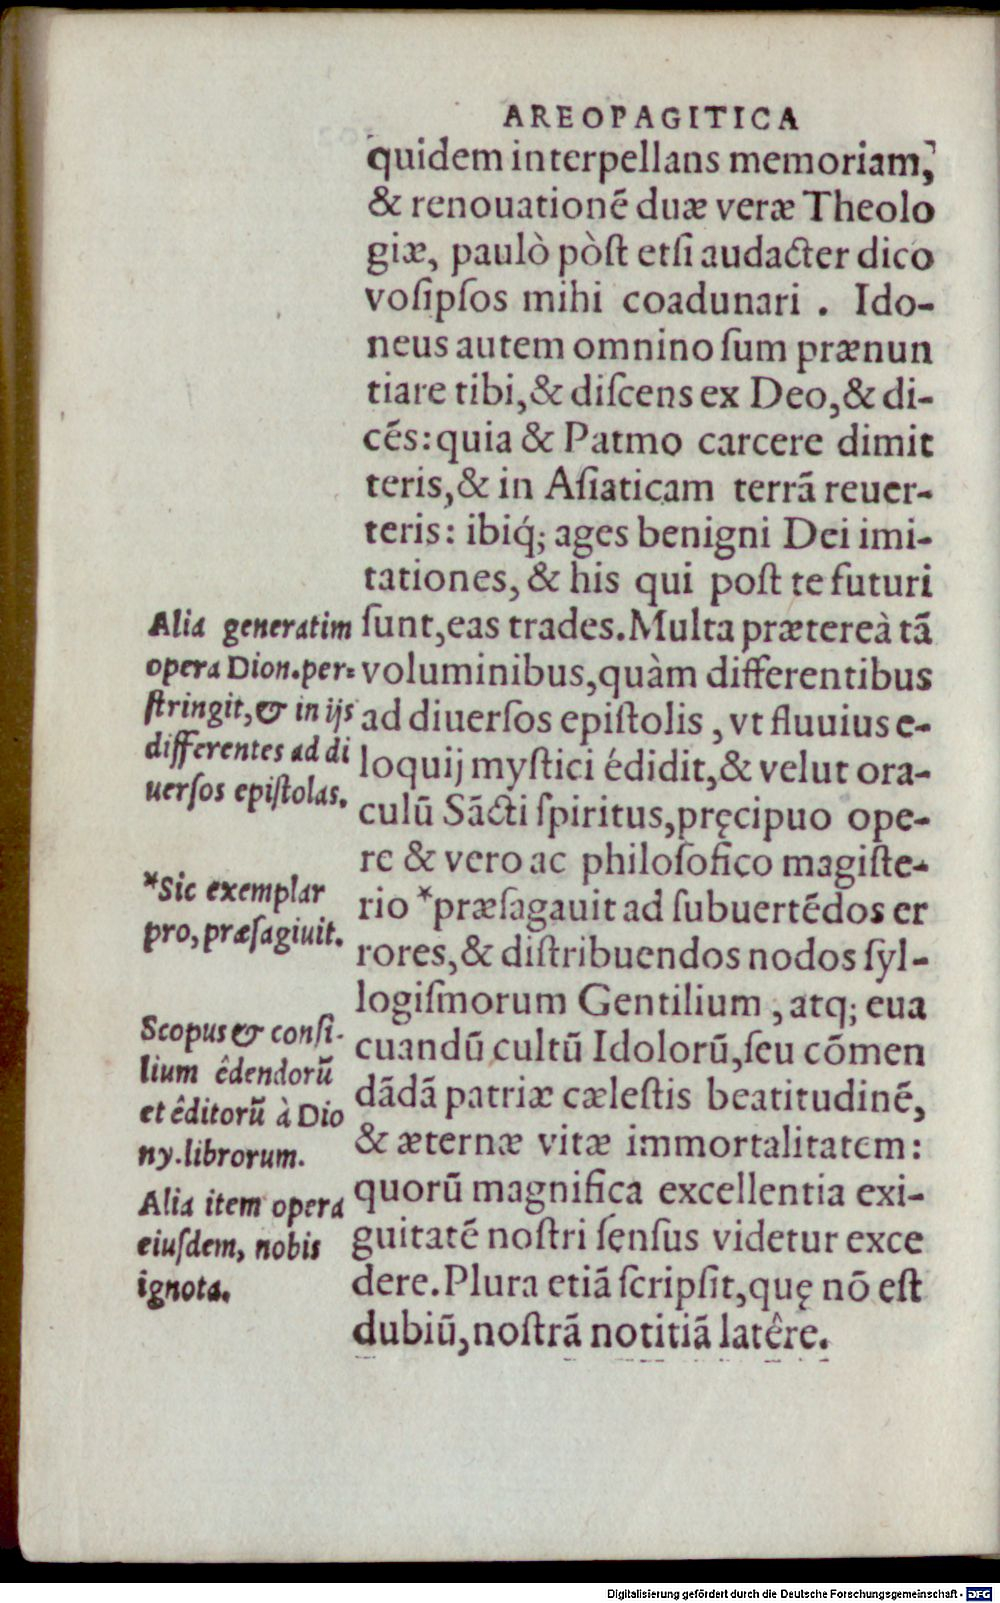 AREOPAGITICA
quidem interpellans memoriam,
& renouationē duæ veræ Theolo
giæ, paulò pòſt etſi audacter dico
voſipſos mihi coadunari . Ido-
neus autem omnino ſum prænun
tiare tibi,& diſcens ex Deo,& di-
cēs:quia & Patmo carcere dimit
teris,& in Aſiaticam terrā reuer-
teris: ibiq́; ages benigni Dei imi-
tationes, & his qui poſt te futuri
ſunt,eas trades.Multa prætereà tā
voluminibus,quàm differentibus
ad diuerſos epiſtolis , vt fluuius e-
loquij myſtici édidit,& velut ora-
culū Sācti ſpiritus,pręcipuo ope-
re & vero ac philoſofico magiſte-
rio *præſagauit ad ſubuertēdos er
rores,& diſtribuendos nodos ſyl-
logiſmorum Gentilium , atq; eua
cuandū cultū Idolorū,ſeu cōmen
dādā patriæ cæleſtis beatitudinē,
& æternæ vitæ immortalitatem:
quorū magnifica excellentia exi-
guitatē noſtri ſenſus videtur exce
dere.Plura etiā ſcripſit,quę nō eſt
dubiū,noſtrā notitiā latêre.
Alia generatim
opera Dion.per-
ſtringit,& in ijs
differentes ad di
uerſos epiſtolas.
*Sic exemplar
pro, præſagiuit.
Scopus & conſi-
lium êdendorū
et êditorū à Dio
ny.librorum.
Alia item opera
eiuſdem, nobis
ignota.
Digitalisierung gefördert durch die Deutsche Forschungsgemeinschaft - DFG